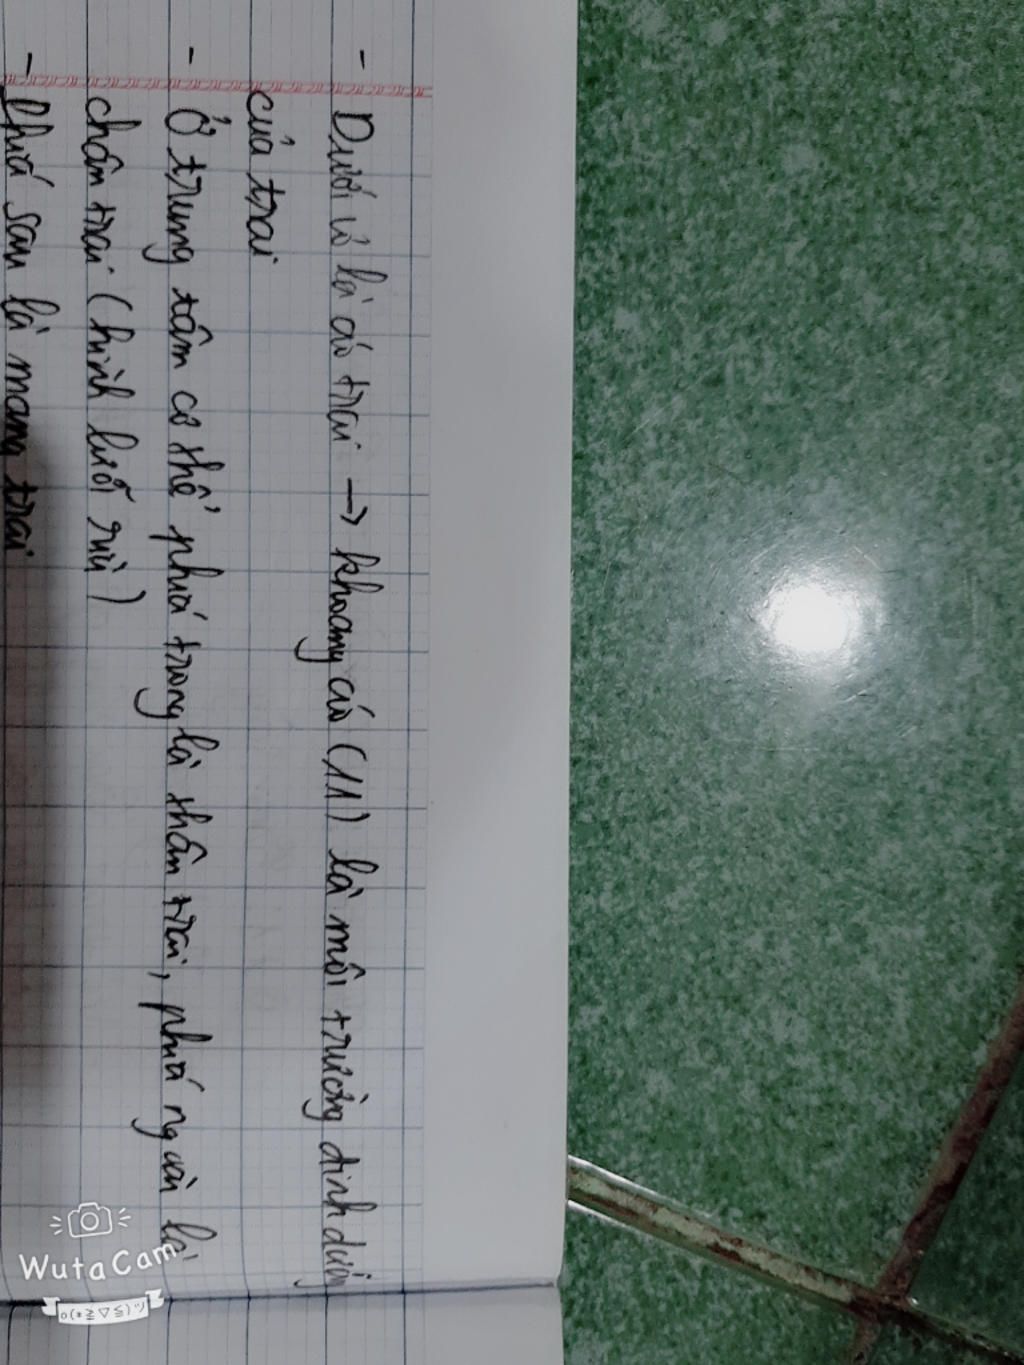 - Dưới vỏ là áo trai → khoang áo (11) là môi trường dinh dưỡng
của trai
- Ở trung tâm cơ thể phía trong là thân trai, phía ngoài là
chân trai (hình lưỡi rìu)
- Phía sau là mang trai
WutaCam